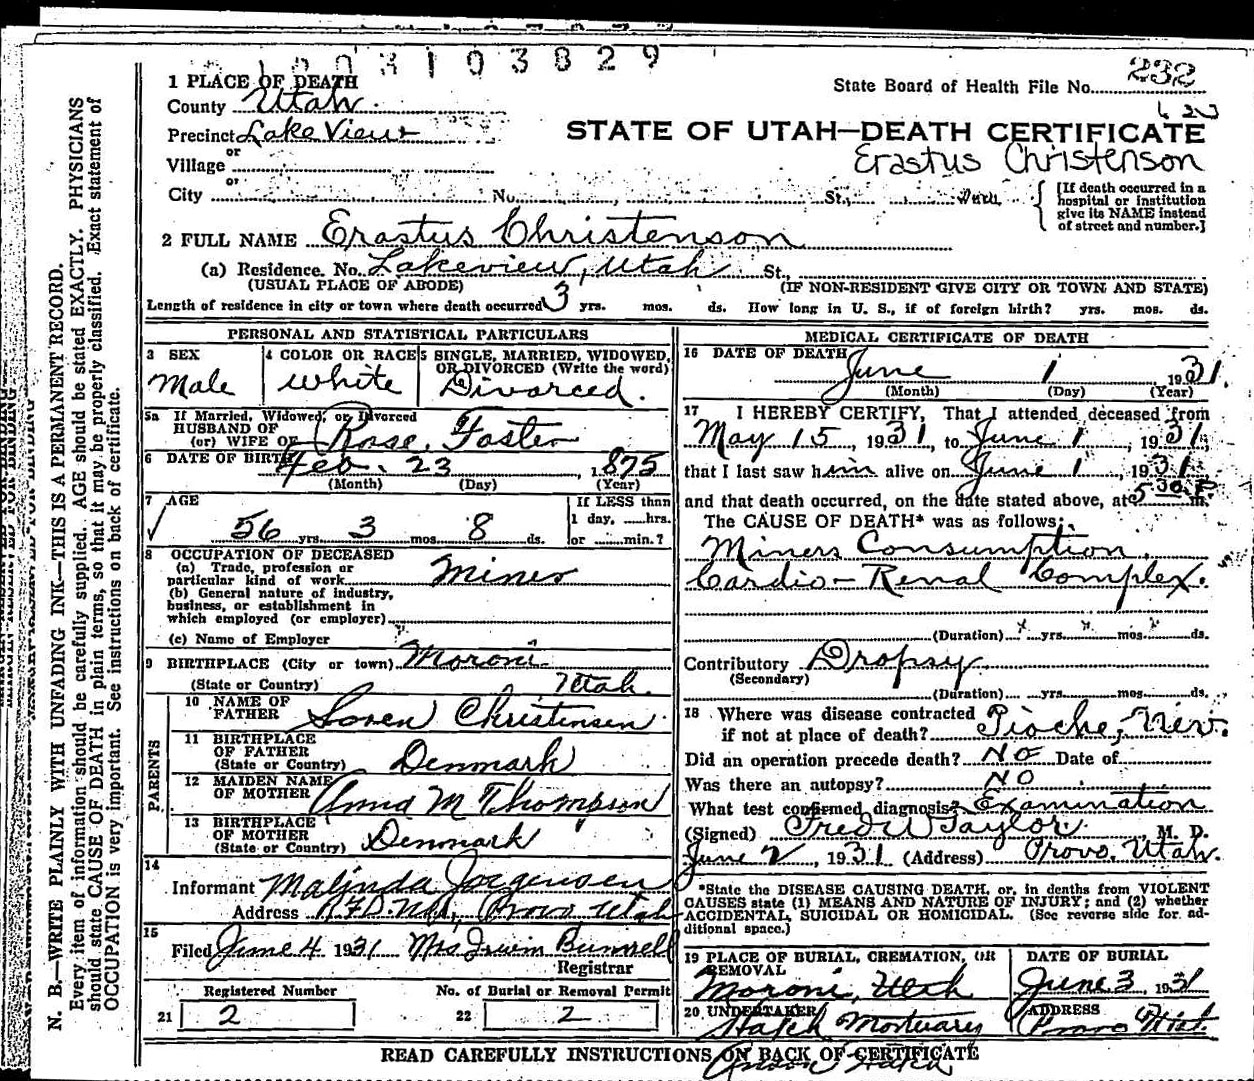 1003103829
1 PLACE OF DEATH
State Board of Health File No. 232
County Utah
Precinct Lake View
STATE OF UTAH—DEATH CERTIFICATE
or
Village
Erastus Christenson
or
City No. St.,
[If death occurred in a
hospital or institution
give its NAME instead
of street and number.]
2 FULL NAME Erastus Christenson
(a) Residence. No. Lakeview, Utah St.,
(USUAL PLACE OF ABODE) (IF NON-RESIDENT GIVE CITY OR TOWN AND STATE)
Length of residence in city or town where death occurred 3 yrs. mos. ds. How long in U. S., if of foreign birth? yrs. mos. ds.
PERSONAL AND STATISTICAL PARTICULARS
3 SEX
Male
4 COLOR OR RACE
White
5 SINGLE, MARRIED, WIDOWED,
OR DIVORCED (Write the word)
Divorced.
5a If Married, Widowed, or Divorced
HUSBAND OF
(or) WIFE OF Rose Foster
6 DATE OF BIRTH Feb. 23 1875
(Month) (Day) (Year)
7 AGE
56 yrs. 3 mos. 8 ds.
If LESS than
1 day, hrs.
or min.?
8 OCCUPATION OF DECEASED
(a) Trade, profession or
particular kind of work Miner
(b) General nature of industry,
business, or establishment in
which employed (or employer)
(c) Name of Employer
9 BIRTHPLACE (City or town) Moroni
(State or Country) Utah.
PARENTS
10 NAME OF
FATHER Soren Christensen
11 BIRTHPLACE
OF FATHER
(State or Country) Denmark
12 MAIDEN NAME
OF MOTHER Anna M Thompson
13 BIRTHPLACE
OF MOTHER
(State or Country) Denmark
14
Informant Malinda Jorgensen
Address R.F.D. Provo Utah
15
Filed June 4 1931 Mrs Irwin Bunnell
Registrar
Registered Number No. of Burial or Removal Permit
21 2 22 2
MEDICAL CERTIFICATE OF DEATH
16 DATE OF DEATH
June 1 1931.
(Month) (Day) (Year)
17 I HEREBY CERTIFY, That I attended deceased from
May 15, 1931, to June 1, 1931,
that I last saw him alive on June 1, 1931
and that death occurred, on the date stated above, at 530 P. m.
The CAUSE OF DEATH* was as follows:
Miners Consumption.
Cardio-Renal Complex.
(Duration) yrs. mos. ds.
Contributory Dropsy
(Secondary)
(Duration) yrs. mos. ds.
18 Where was disease contracted
if not at place of death? Pioche, Nev.
Did an operation precede death? No Date of
Was there an autopsy? No
What test confirmed diagnosis? Examination
(Signed) Fred W Taylor, M. D.
June 2, 1931 (Address) Provo, Utah.
*State the DISEASE CAUSING DEATH, or, in deaths from VIOLENT
CAUSES state (1) MEANS AND NATURE OF INJURY; and (2) whether
ACCIDENTAL, SUICIDAL OR HOMICIDAL. (See reverse side for ad-
ditional space.)
19 PLACE OF BURIAL, CREMATION, OR
REMOVAL
Moroni, Utah
DATE OF BURIAL
June 3, 1931
20 UNDERTAKER
Hatch Mortuary
ADDRESS
Provo Utah.
READ CAREFULLY INSTRUCTIONS ON BACK OF CERTIFICATE
Anson Hatch
N. B.—WRITE PLAINLY WITH UNFADING INK—THIS IS A PERMANENT RECORD.
Every item of information should be carefully supplied. AGE should be stated EXACTLY. PHYSICIANS
should state CAUSE OF DEATH in plain terms, so that it may be properly classified. Exact statement of
OCCUPATION is very important. See instructions on back of certificate.
MARGIN RESERVED FOR BINDING